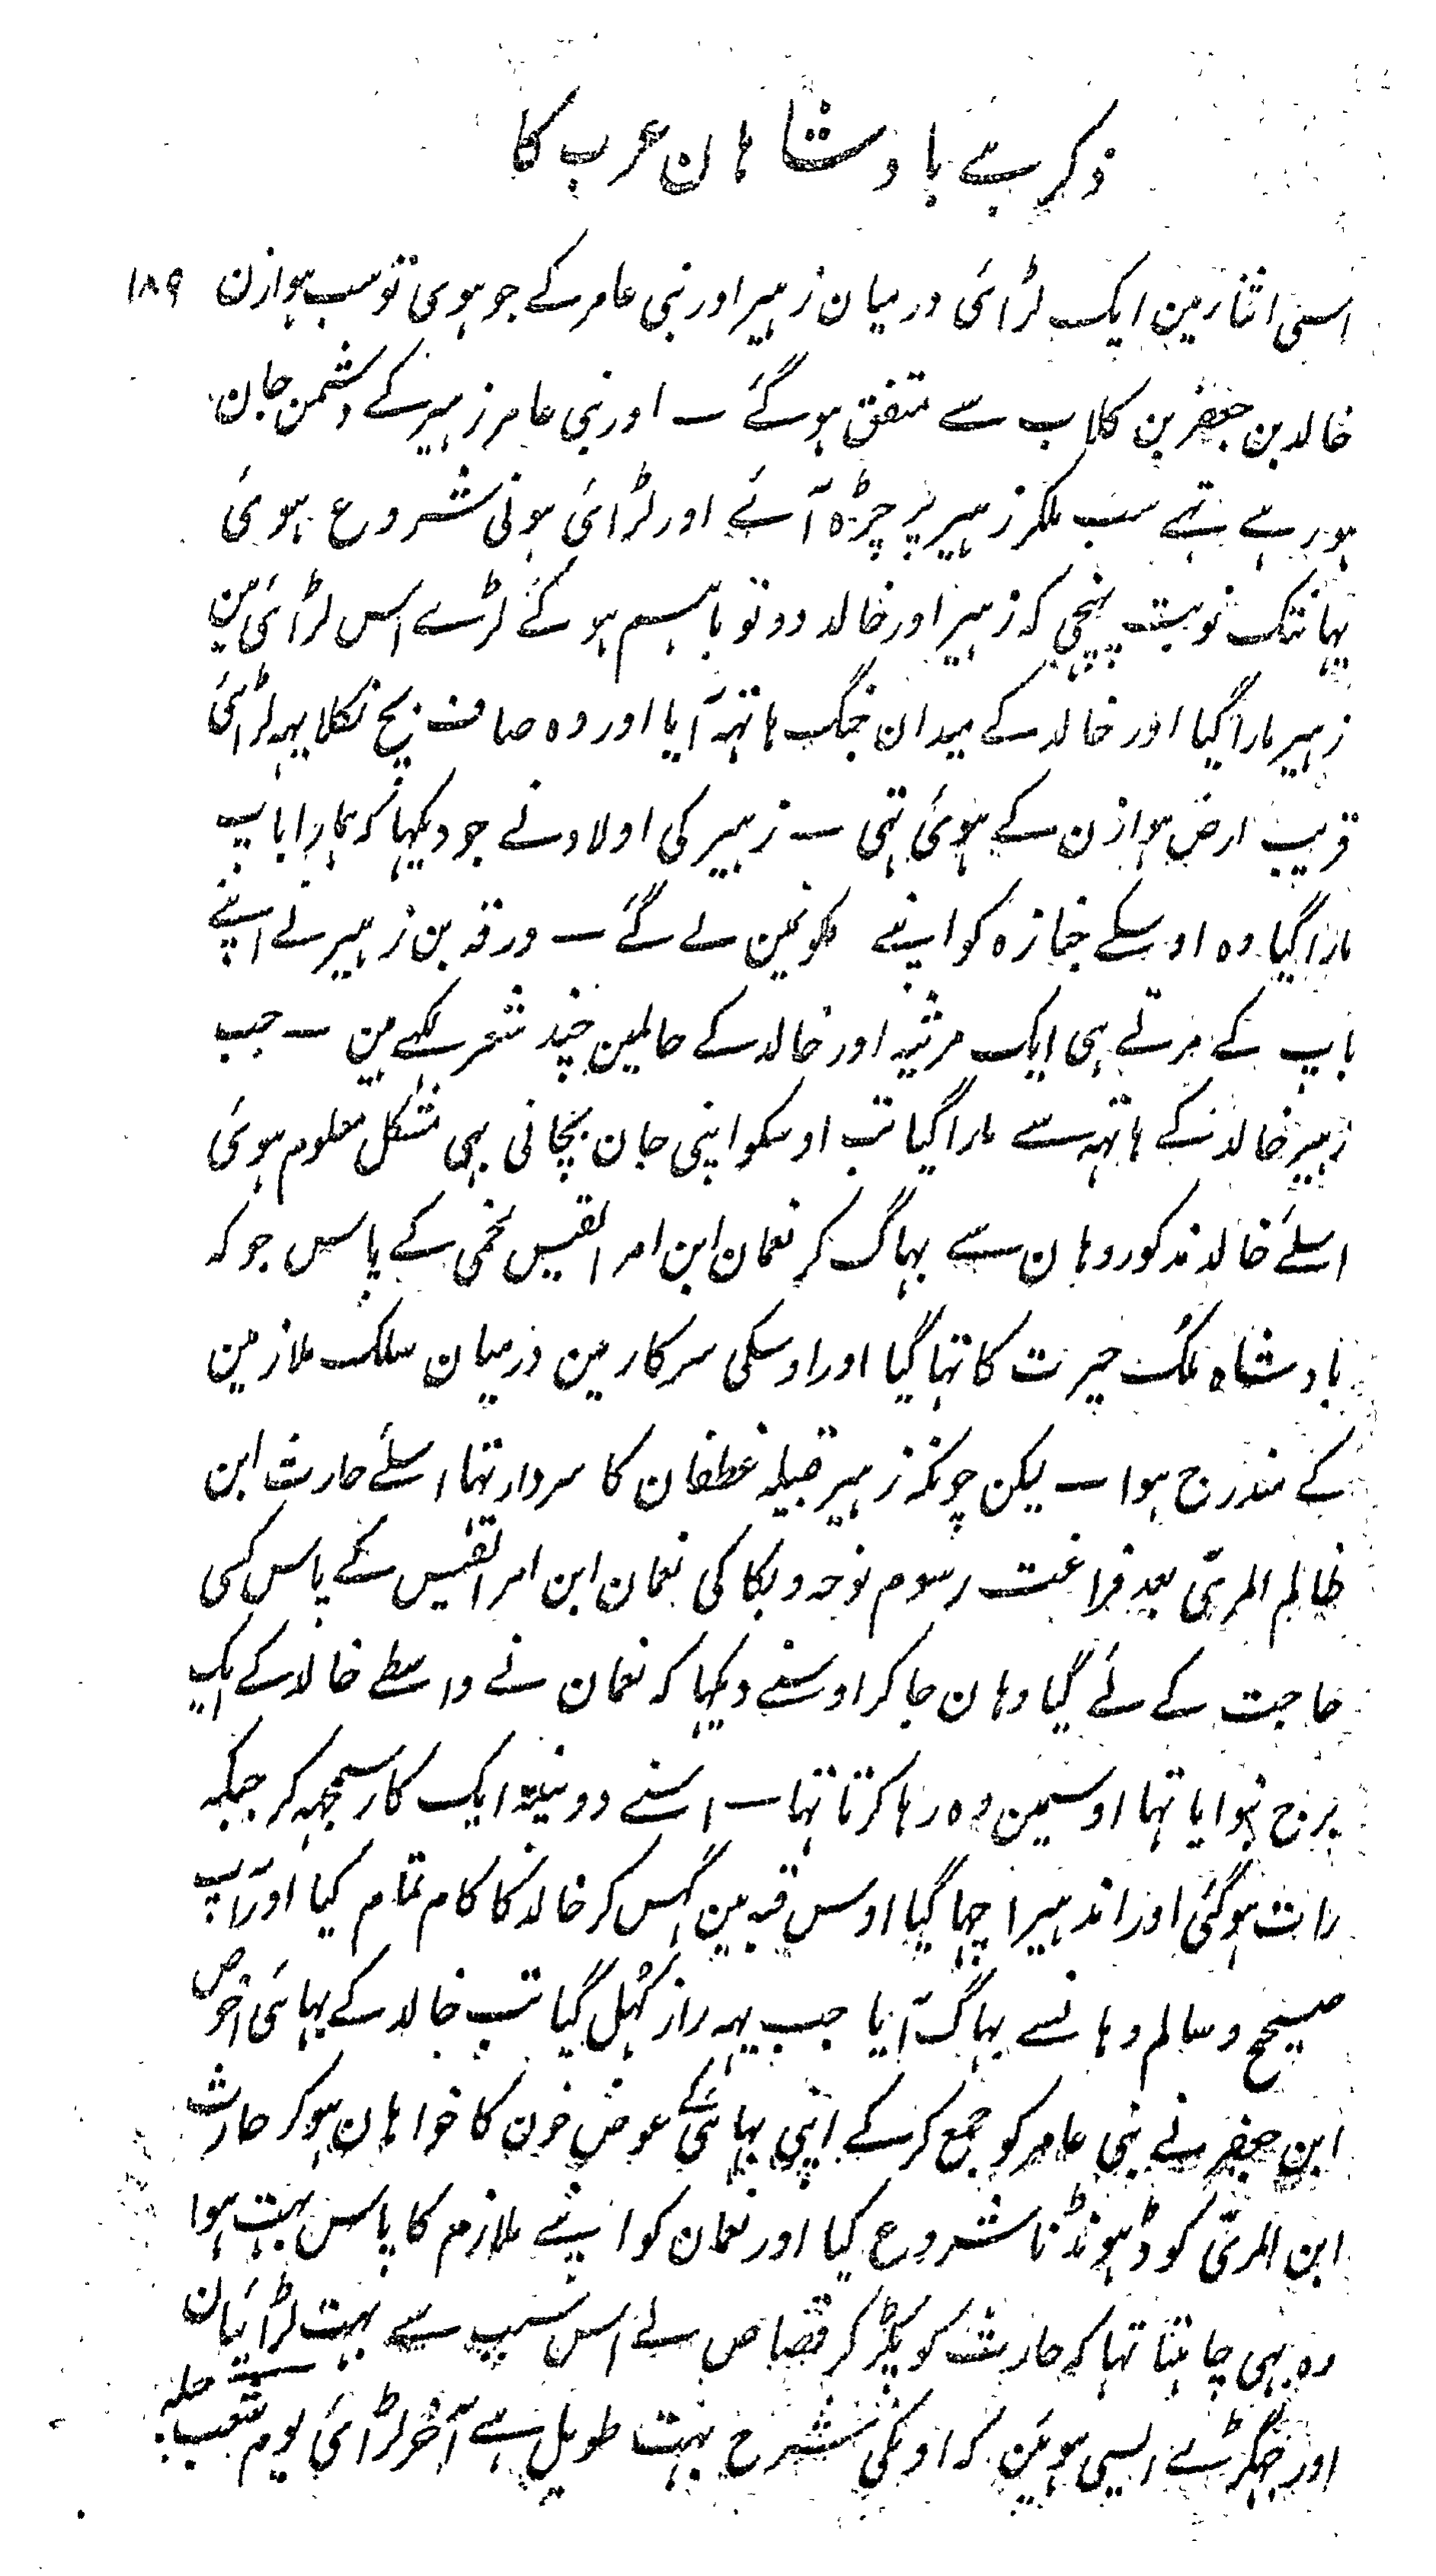 ذکر ہے بادشاہان عرب کا
۱۸۹
اسی اثنا مین ایک لڑائی درمیان زہیر اور بنی عامر کے جو ہوی تو سب ہوازن
خالد بن جعفر بن کلاب سے متفق ہو گئے ۔ اور بنی عامر زہیر کے دشمن جان
ہو رہے تہے سب ملکر زہیر پر چڑہ آئے اور لڑائی ہونی شروع ہوئی
یہانتک نوبت پہنچی کہ زہیر اور خالد دونو باہم ہو کے لڑے اس لڑائی مین
زہیر مارا گیا اور خالد کے میدان جنگ ہاتہہ آیا اور وہ صاف بچ نکلا یہہ لڑائی
قریب ارض ہوازن کے ہوئی تہی ۔ زہیر کی اولاد نے جو دیکہا کہ ہمارا باپ
مارا گیا وہ اوسکے جنازہ کو اپنے ملکونمین لے گئے ۔ ورقہ بن زہیر نے اپنے
باپ کے مرتے ہی ایک مرثیہ اور خالد کے حالمین چند شعر لکہے ہین ۔ جب
زہیر خالد کے ہاتہہ سے مارا گیا تب اوسکو اپنی جان بچانی بہی مشکل معلوم ہوئی
اسلئے خالد مذکور وہان سے بہاگ کر نعمان ابن امر القیس لخمی کے پاس جو کہ
بادشاہ ملک حیرت کا تہا گیا اور اوسکی سرکار مین درمیان سلک ملازمین
کے مندرج ہوا ۔ لیکن چونکہ زہیر قبیلہ غطفان کا سردار تہا اسلئے حارث ابن
ظالم المری بعد فراغت رسوم نوحہ و بکا کی نعمان ابن امر القیس کے پاس کسی
حاجت کے لئے گیا وہان جا کر اوسنے دیکہا کہ نعمان نے واسطے خالد کے ایک
برج بنوایا تہا اوسمین وہ رہا کرتا تہا ۔ اسنے دو نیۃ ایک کار سمجہہ کر جبکہ
رات ہو گئی اور اندہیرا چہا گیا اوس قبہ مین گہس کر خالد کا کام تمام کیا اور آپ
صحیح و سالم وہانسے بہاگ آیا جب یہہ راز کہل گیا تب خالد کے بہائی اخوص
ابن جعفر نے بنی عامر کو جمع کر کے اپنی بہائی کے عوض خون کا خواہان ہو کر حارث
ابن المری کو ڈہونڈنا شروع کیا اور نعمان کو اپنے ملازم کا پاس بہت ہوا
وہ بہی چاہتا تہا کہ حارث کو پکڑ کر قصاص لے اس سبب سے بہت لڑائیان
اور جہگڑے ایسی ہوئین کہ اونکی شرح بہت طویل ہے آخر لڑائی یوم شعب جبلہ